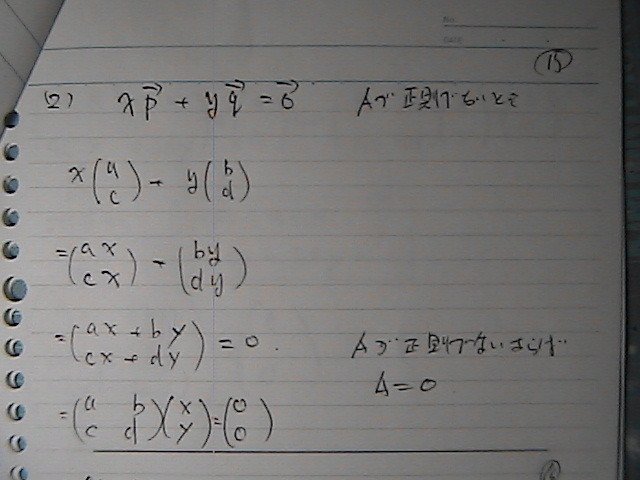 No.
DATE
15
(2) x p⃗ + y q⃗ = 0⃗ Aが正則でないとき
x(a c) + y(b d)
=(ax cx) + (by dy)
=(ax+by cx+dy) = 0.
Aが正則でないならば
Δ=0
=(a b c d)(x y)=(0 0)